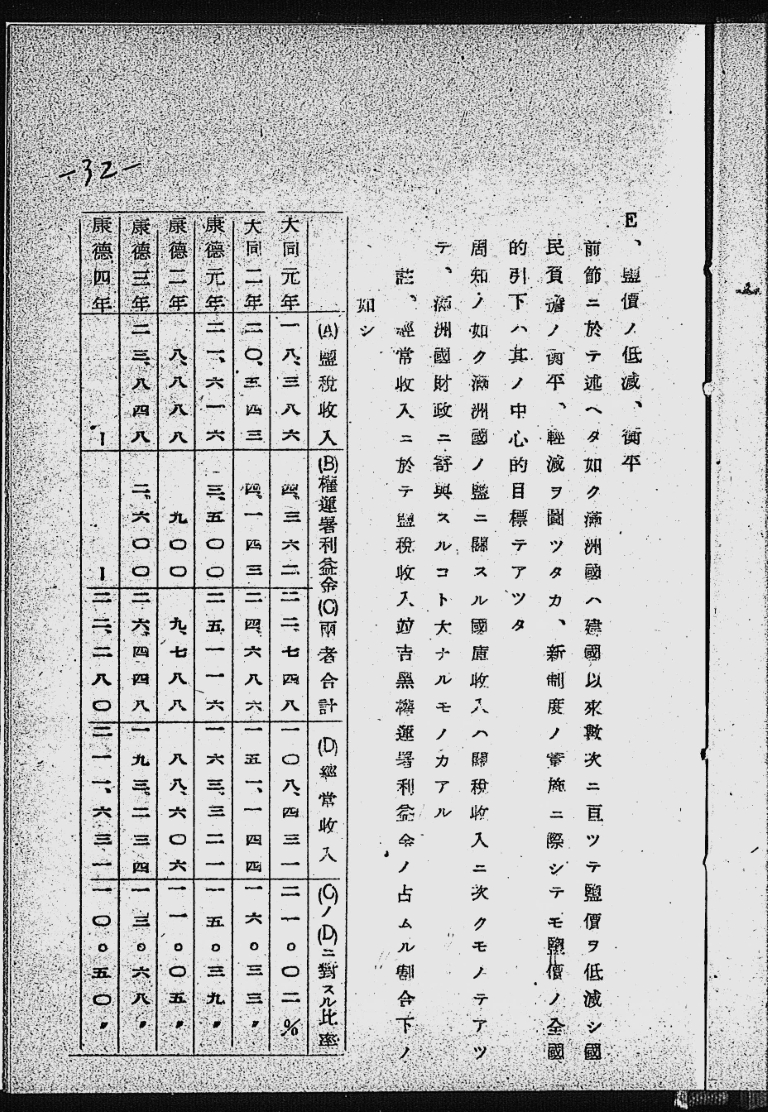 E、鹽價ノ低減、衡平
前節ニ於テ述ヘタ如ク滿洲國ハ建國以來數次ニ亘ツテ鹽價ヲ低減シ國
民負擔ノ衡平、輕減ヲ圖ツタカ、新制度ノ實施ニ際シテモ鹽價ノ全國
的引下ハ其ノ中心的目標テアツタ
周知ノ如ク滿洲國ノ鹽ニ關スル國庫收入ハ關稅收入ニ次クモノテアツ
テ、滿洲國財政ニ寄與スルコト大ナルモノカアル
註、經常收入ニ於テ鹽稅收入竝吉黑榷運署利益金ノ占ムル割合下ノ
如シ
(A)鹽稅收入 (B)榷運署利益金 (C)兩者合計 (D)經常收入 (C)ノ(D)ニ對スル比率
大同元年 一八、三八六 四、三六二 二二、七四八 一〇八、四三一 二一。〇二%
大同二年 二〇、五四三 四、一四三 二四、六八六 一五一、一四四 一六。三三〃
康德元年 二一、六一六 三、五〇〇 二五、一一六 一六三、三二一 一五。三九〃
康德二年 八、八八八 九〇〇 九、七八八 八八、六〇六 一一。〇五〃
康德三年 二三、八四八 二、六〇〇 二六、四四八 一九三、二三四 一三。六八〃
康德四年 ー ー 二二、二八〇 二一一、六三一 一〇。五〇〃
-32-